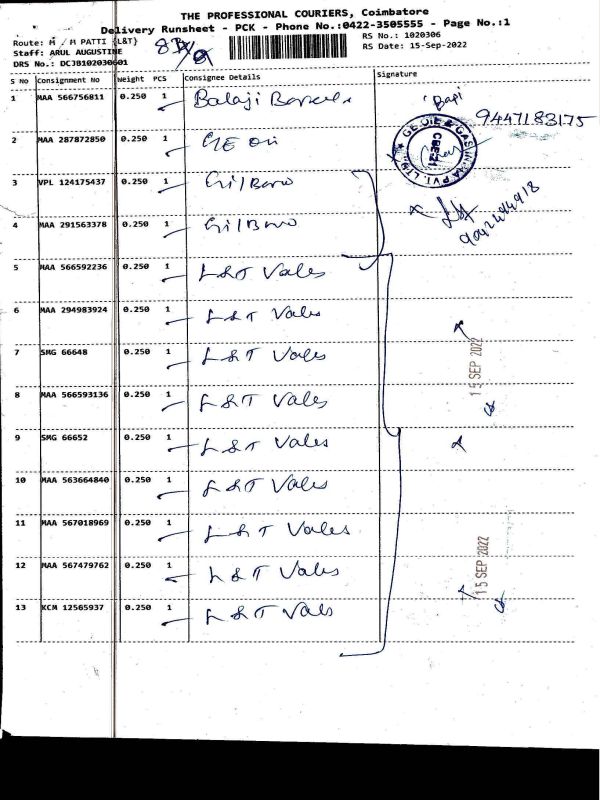 THE PROFESSIONAL COURIERS, Coimbatore
Delivery Runsheet - PCK - Phone No.:0422-3505555 - Page No.:1
Route: M / M PATTI {L&T}
RS No.: 1020306
Staff: ARUL AUGUSTINE
RS Date: 15-Sep-2022
DRS No.: DCJB102030601
S No Consignment No Weight PCS Consignee Details Signature
1 MAA 566756811 0.250 1 Balaji
Bapi
9447183175
2 MAA 287872850 0.250 1 GE Oil
CBE-21
3 VPL 124175437 0.250 1 Gilbarco
9042484918
4 MAA 291563378 0.250 1 Gilbarco
5 MAA 566592236 0.250 1 L&T Vales
6 MAA 294983924 0.250 1 L&T Vales
7 SMG 66648 0.250 1 L&T Vales
15 SEP 2022
8 MAA 566593136 0.250 1 L&T Vales
9 SMG 66652 0.250 1 L&T Vales
10 MAA 563664840 0.250 1 L&T Vales
11 MAA 567018969 0.250 1 L&T Vales
12 MAA 567479762 0.250 1 L&T Vales
15 SEP 2022
13 KCM 12565937 0.250 1 L&T Vals